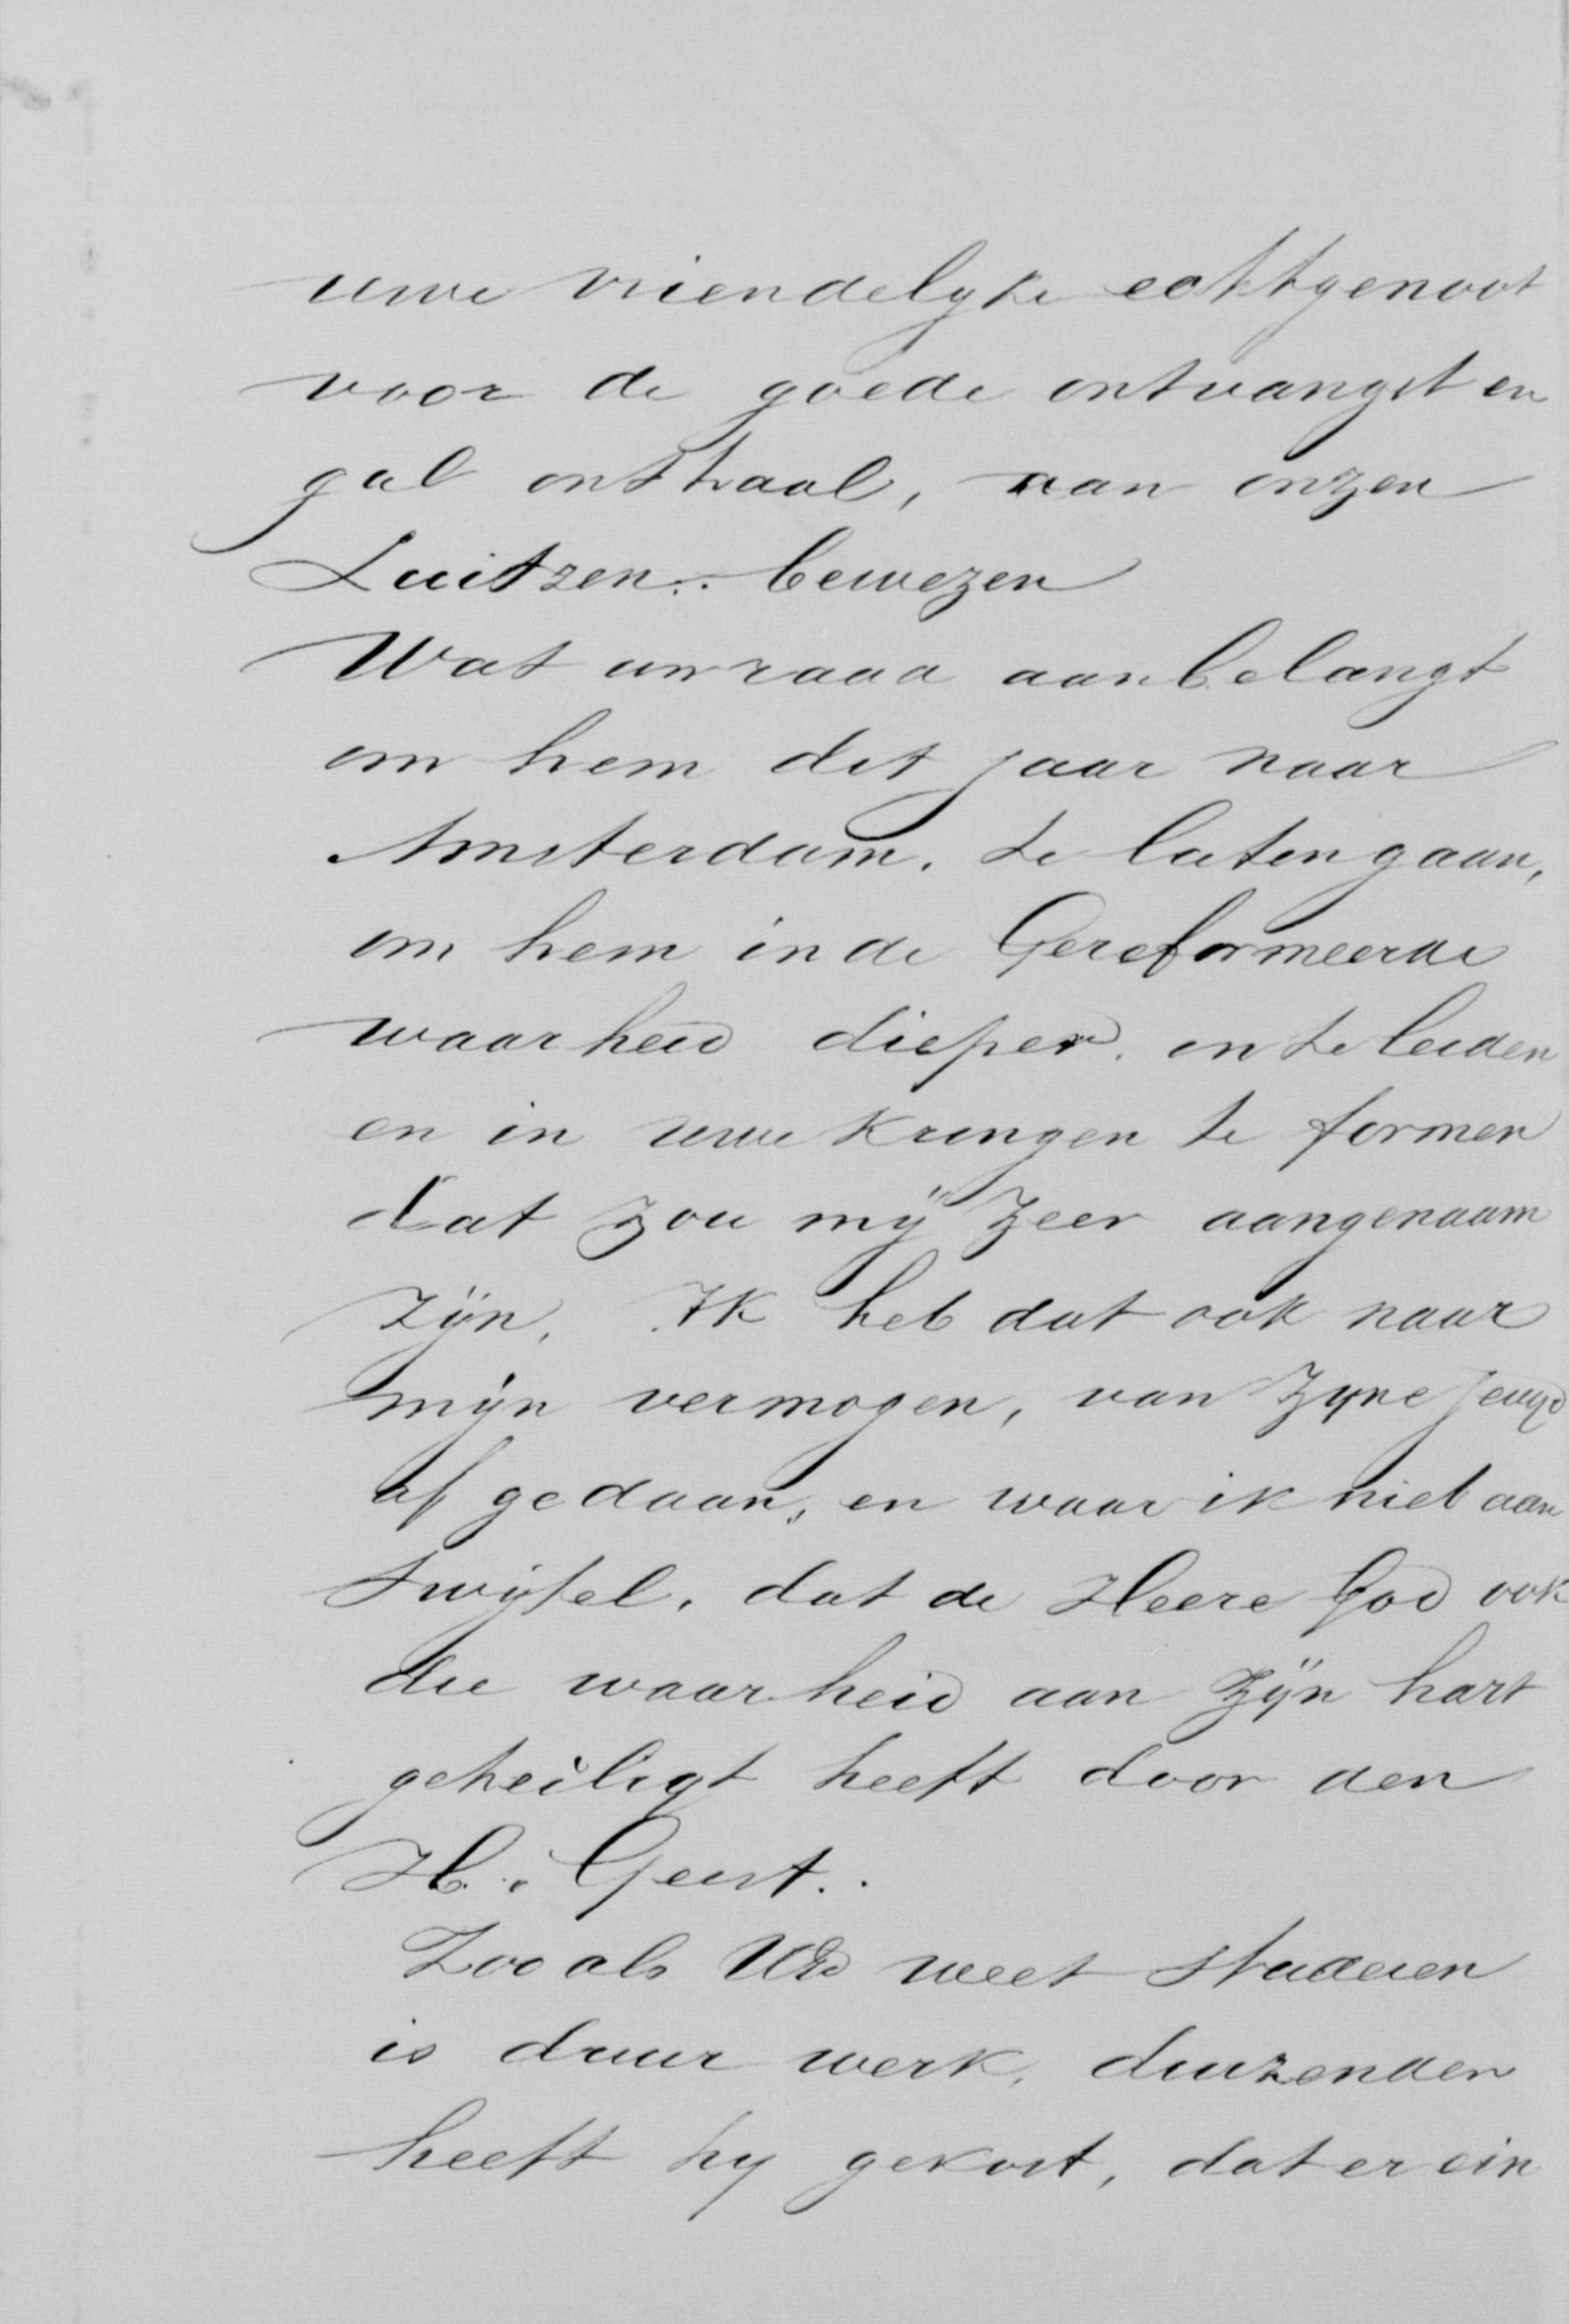 uwe vriendelyke echtgenoot
voor de goede ontvangst en
gul onthaal, aan onzen
Luitzen.. bewezen
Wat uw raad aanbelangt
om hem dit jaar naar
Amsterdam. te laten gaan,
om hem in de Gereformeerde
waarheid dieper. in te leiden
en in uwe kringen te formen
dat zou mij zeer aangenaam
zijn. Ik heb dat ook naar
mijn vermogen, van zyne jeugd
af gedaan, en waar ik niet aan
twijfel. dat de Heere God ook
die waarheid aan zijn hart
geheiligt heeft door den
H. Geest..
Zoo als UEd weet studeren
is duur werk, duizenden
heeft hy gekost, dat er ein